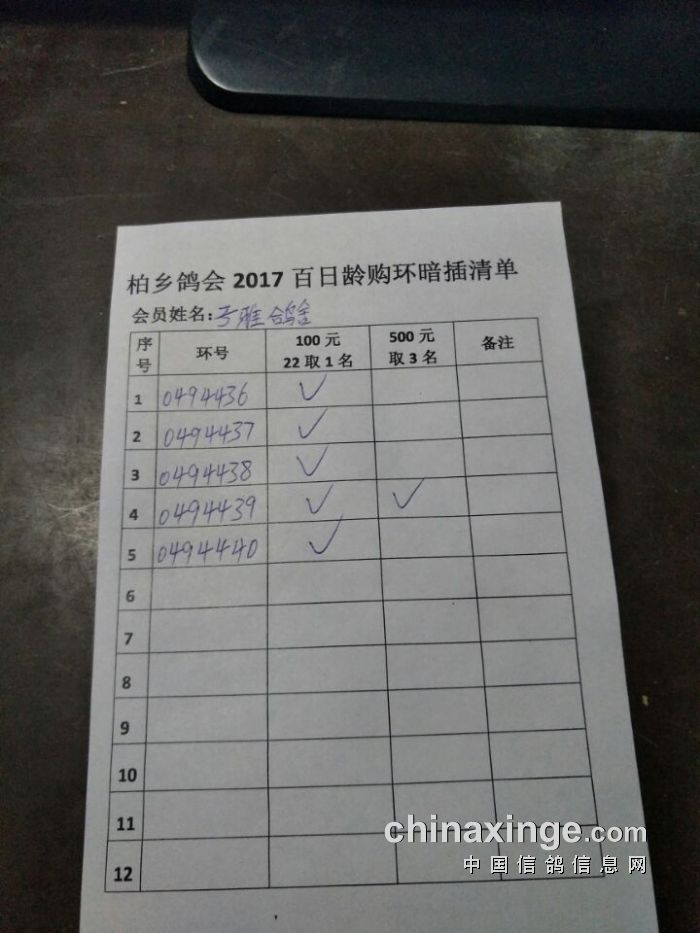 柏乡鸽会2017百日龄购环暗插清单
会员姓名:雅鸽舍
序号 环号 100元 22取1名 500元 取3名 备注
1 0494436 ✓
2 0494437 ✓
3 0494438 ✓
4 0494439 ✓ ✓
5 0494440 ✓
6
7
8
9
10
11
12
chinaxinge.com
中国信鸽信息网